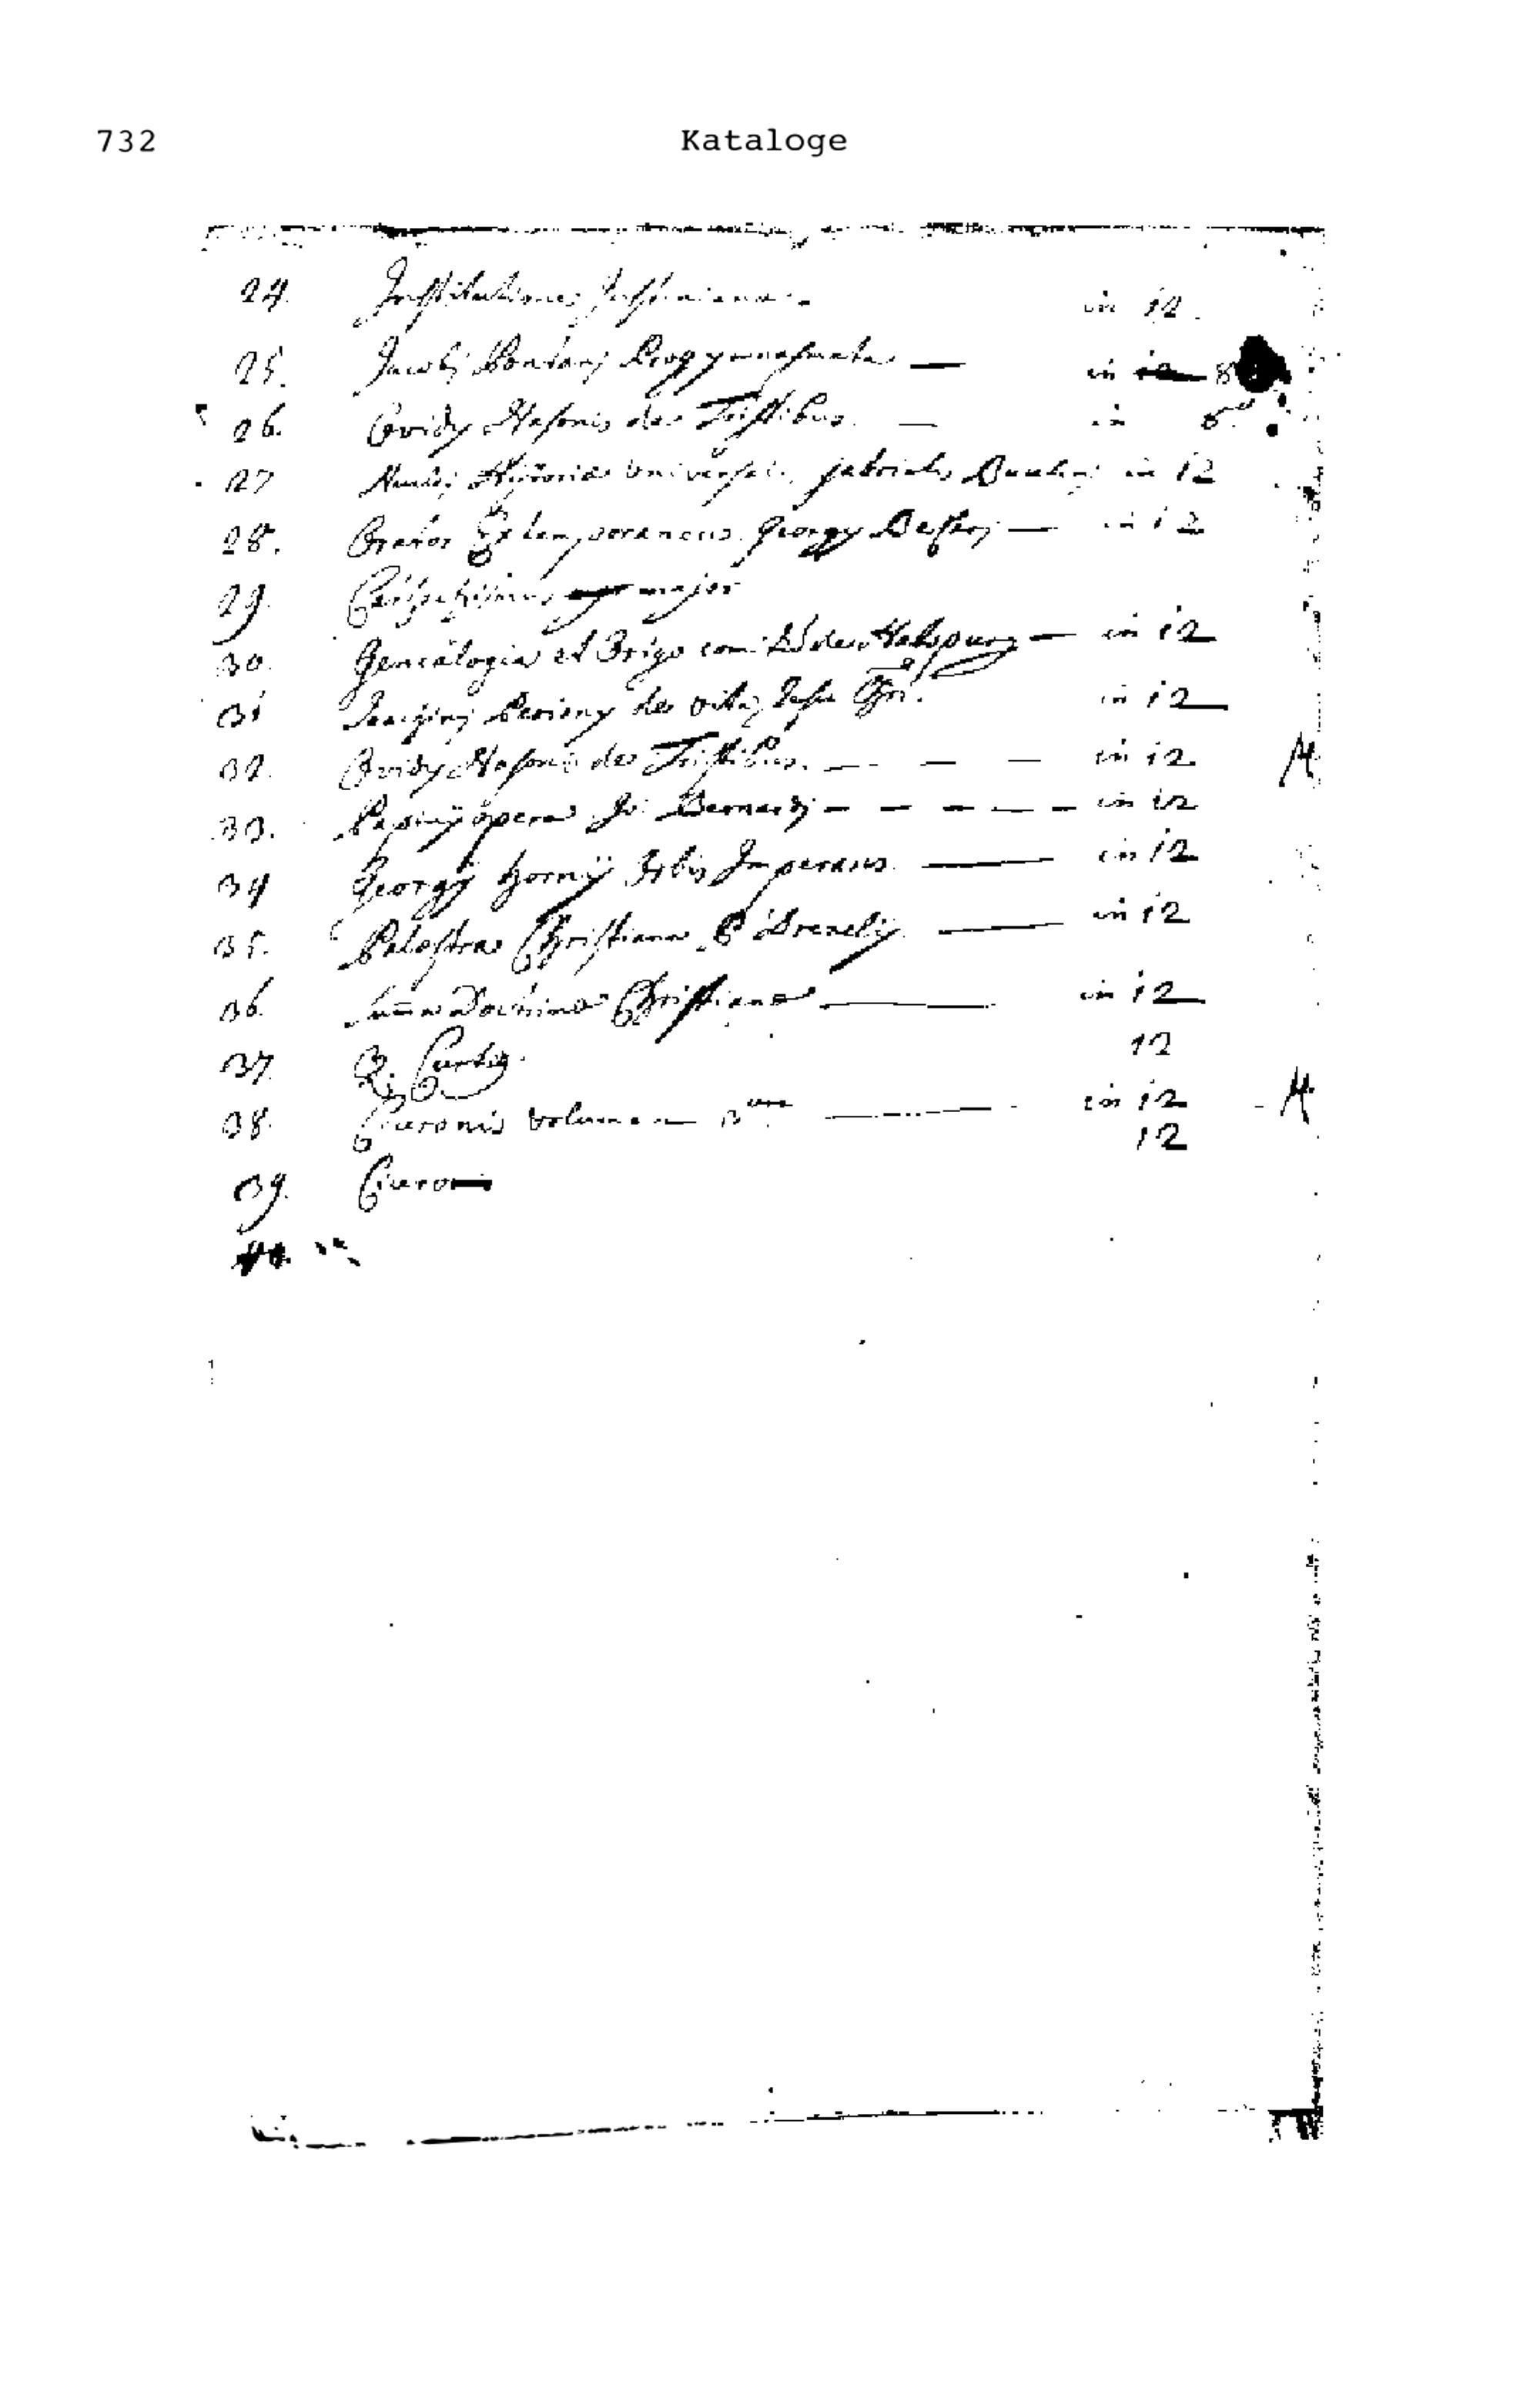 732 Kataloge
24. Institutiones Justiniana in 12.
25. Jacobi Pontani Progymnasmata — in 8
26. Ovidy Nasonis de Tristibus. — in 8
27 Historia universalis, gabrielis in 12
28. Orator Extemporaneus Georgy — in 12
29. major
30. Genealogia et Origo com: de Habspurg — in 12
31 de vita Jesu Chri. in 12
32. Ovidy Nasonis de Tristibus. — — — in 12
33. opera Bernardi — — — — — in 12
34 Georgÿ hornÿ Orbis Imperans. — in 12
35. Palestra Christiana P Drexelij. — in 12
36. Suma Doctrina Christiana — in 12
37. Q. Curtig. 12
38. Ciceronis volumen 3um — in 12
12
39. Cicero
40.